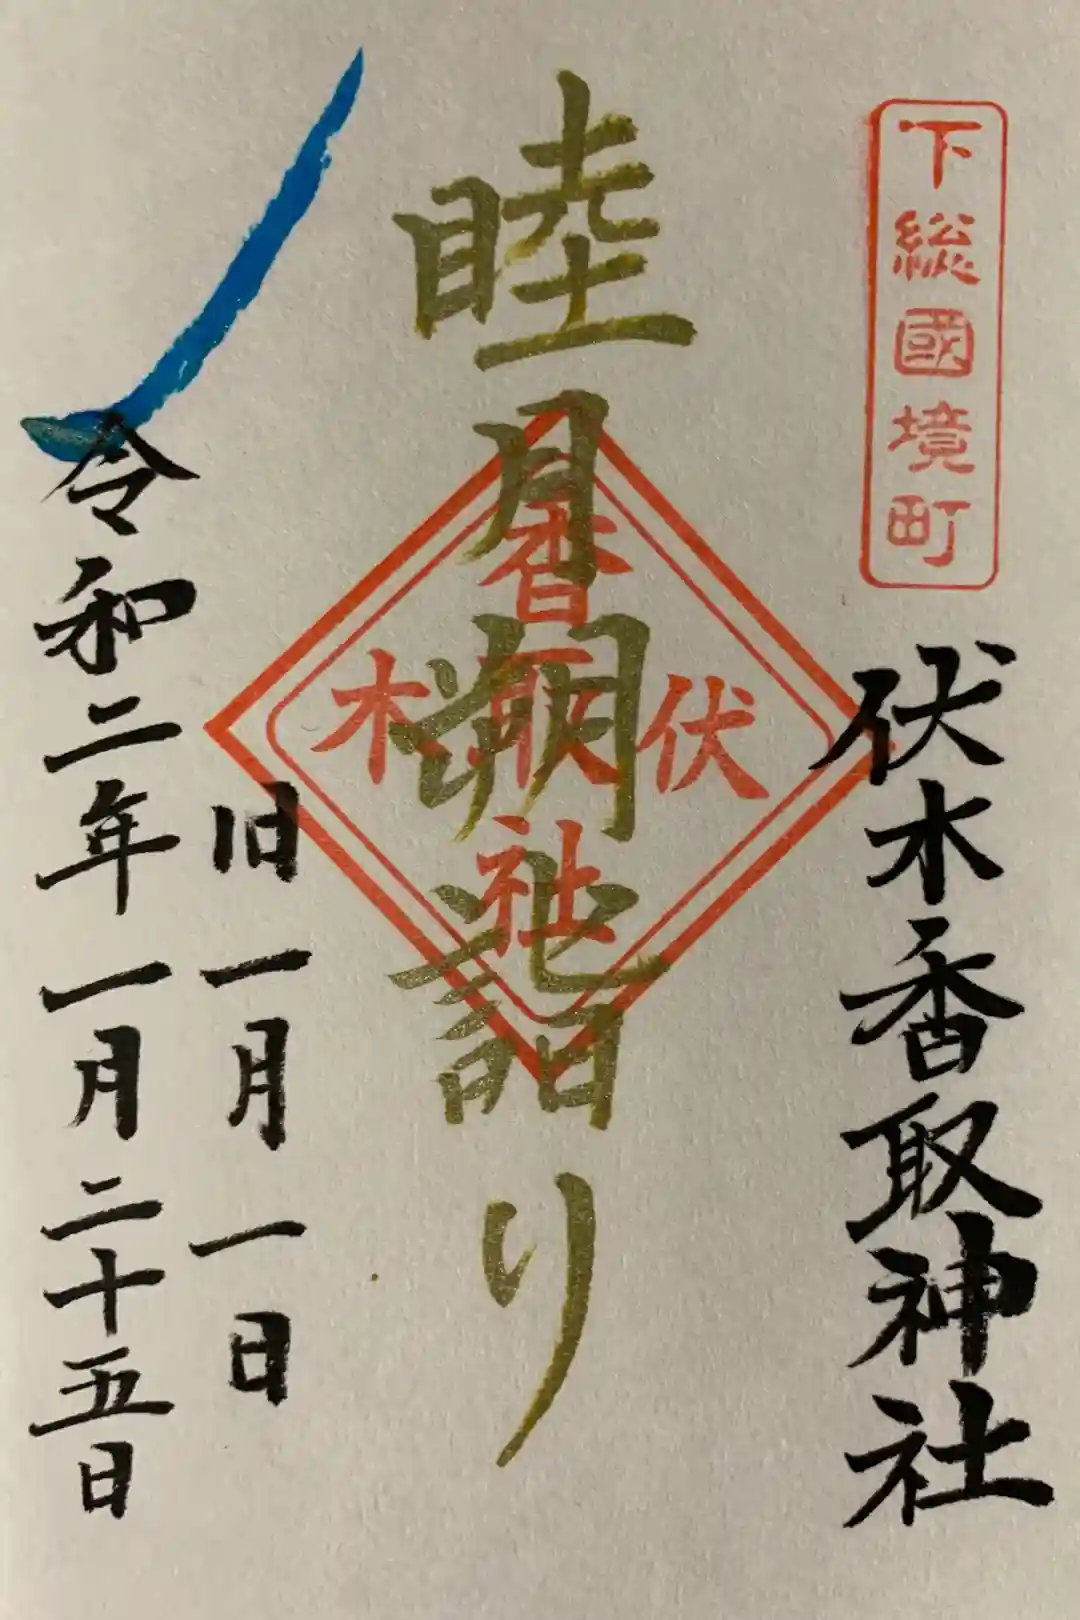 下総國境町
伏木香取神社
睦月朔詣り
香取社
伏木
旧一月一日
令和二年一月二十五日